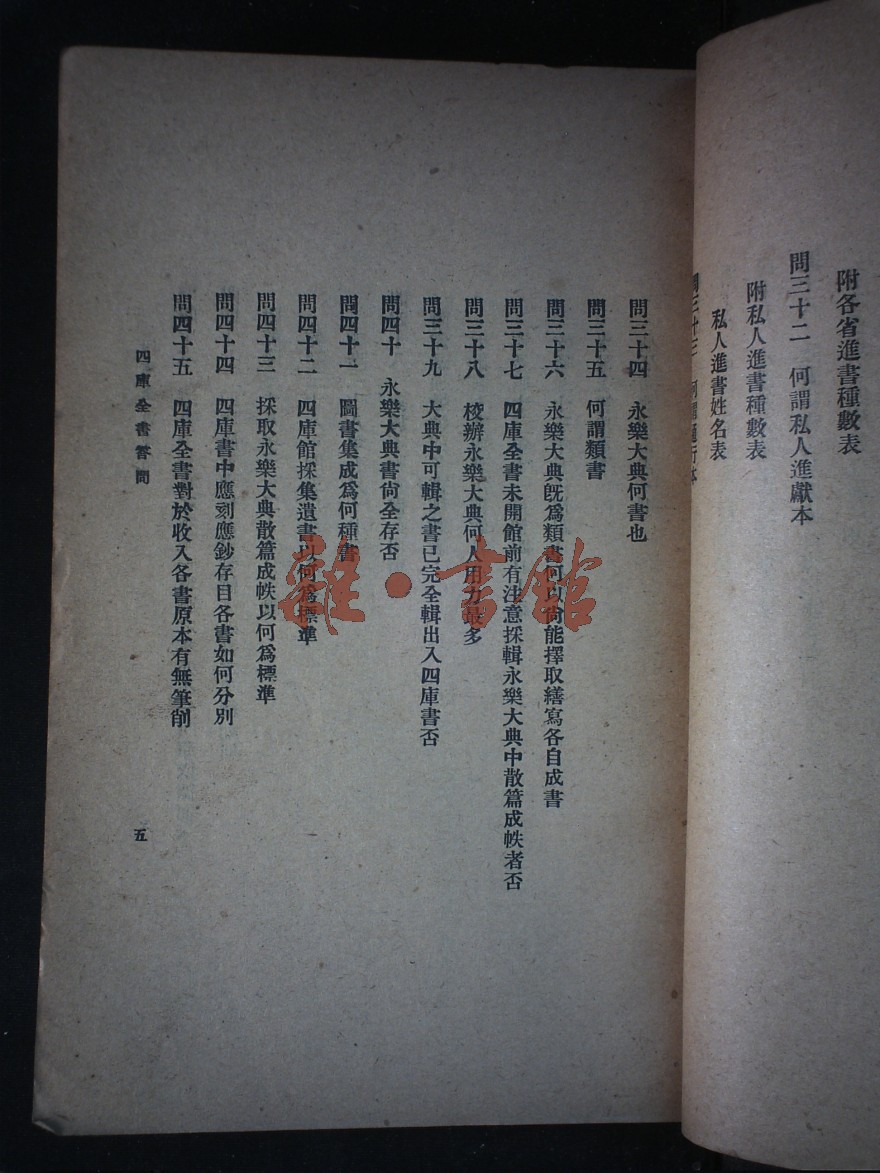 附各省進書種數表
問三十二 何謂私人進獻本
附私人進書種數表
私人進書姓名表
問三十三 何謂通行本
問三十四 永樂大典何書也
問三十五 何謂類書
問三十六 永樂大典既爲類書何以尙能擇取繕寫各自成書
問三十七 四庫全書未開館前有注意採輯永樂大典中散篇成帙者否
問三十八 校辦永樂大典何人用力最多
問三十九 大典中可輯之書已完全輯出入四庫書否
問四十 永樂大典書尙全存否
問四十一 圖書集成爲何種書
問四十二 四庫館採集遺書以何爲標準
問四十三 採取永樂大典散篇成帙以何爲標準
問四十四 四庫書中應刻應鈔存目各書如何分別
問四十五 四庫全書對於收入各書原本有無筆削
四庫全書答問
五
雜·書館